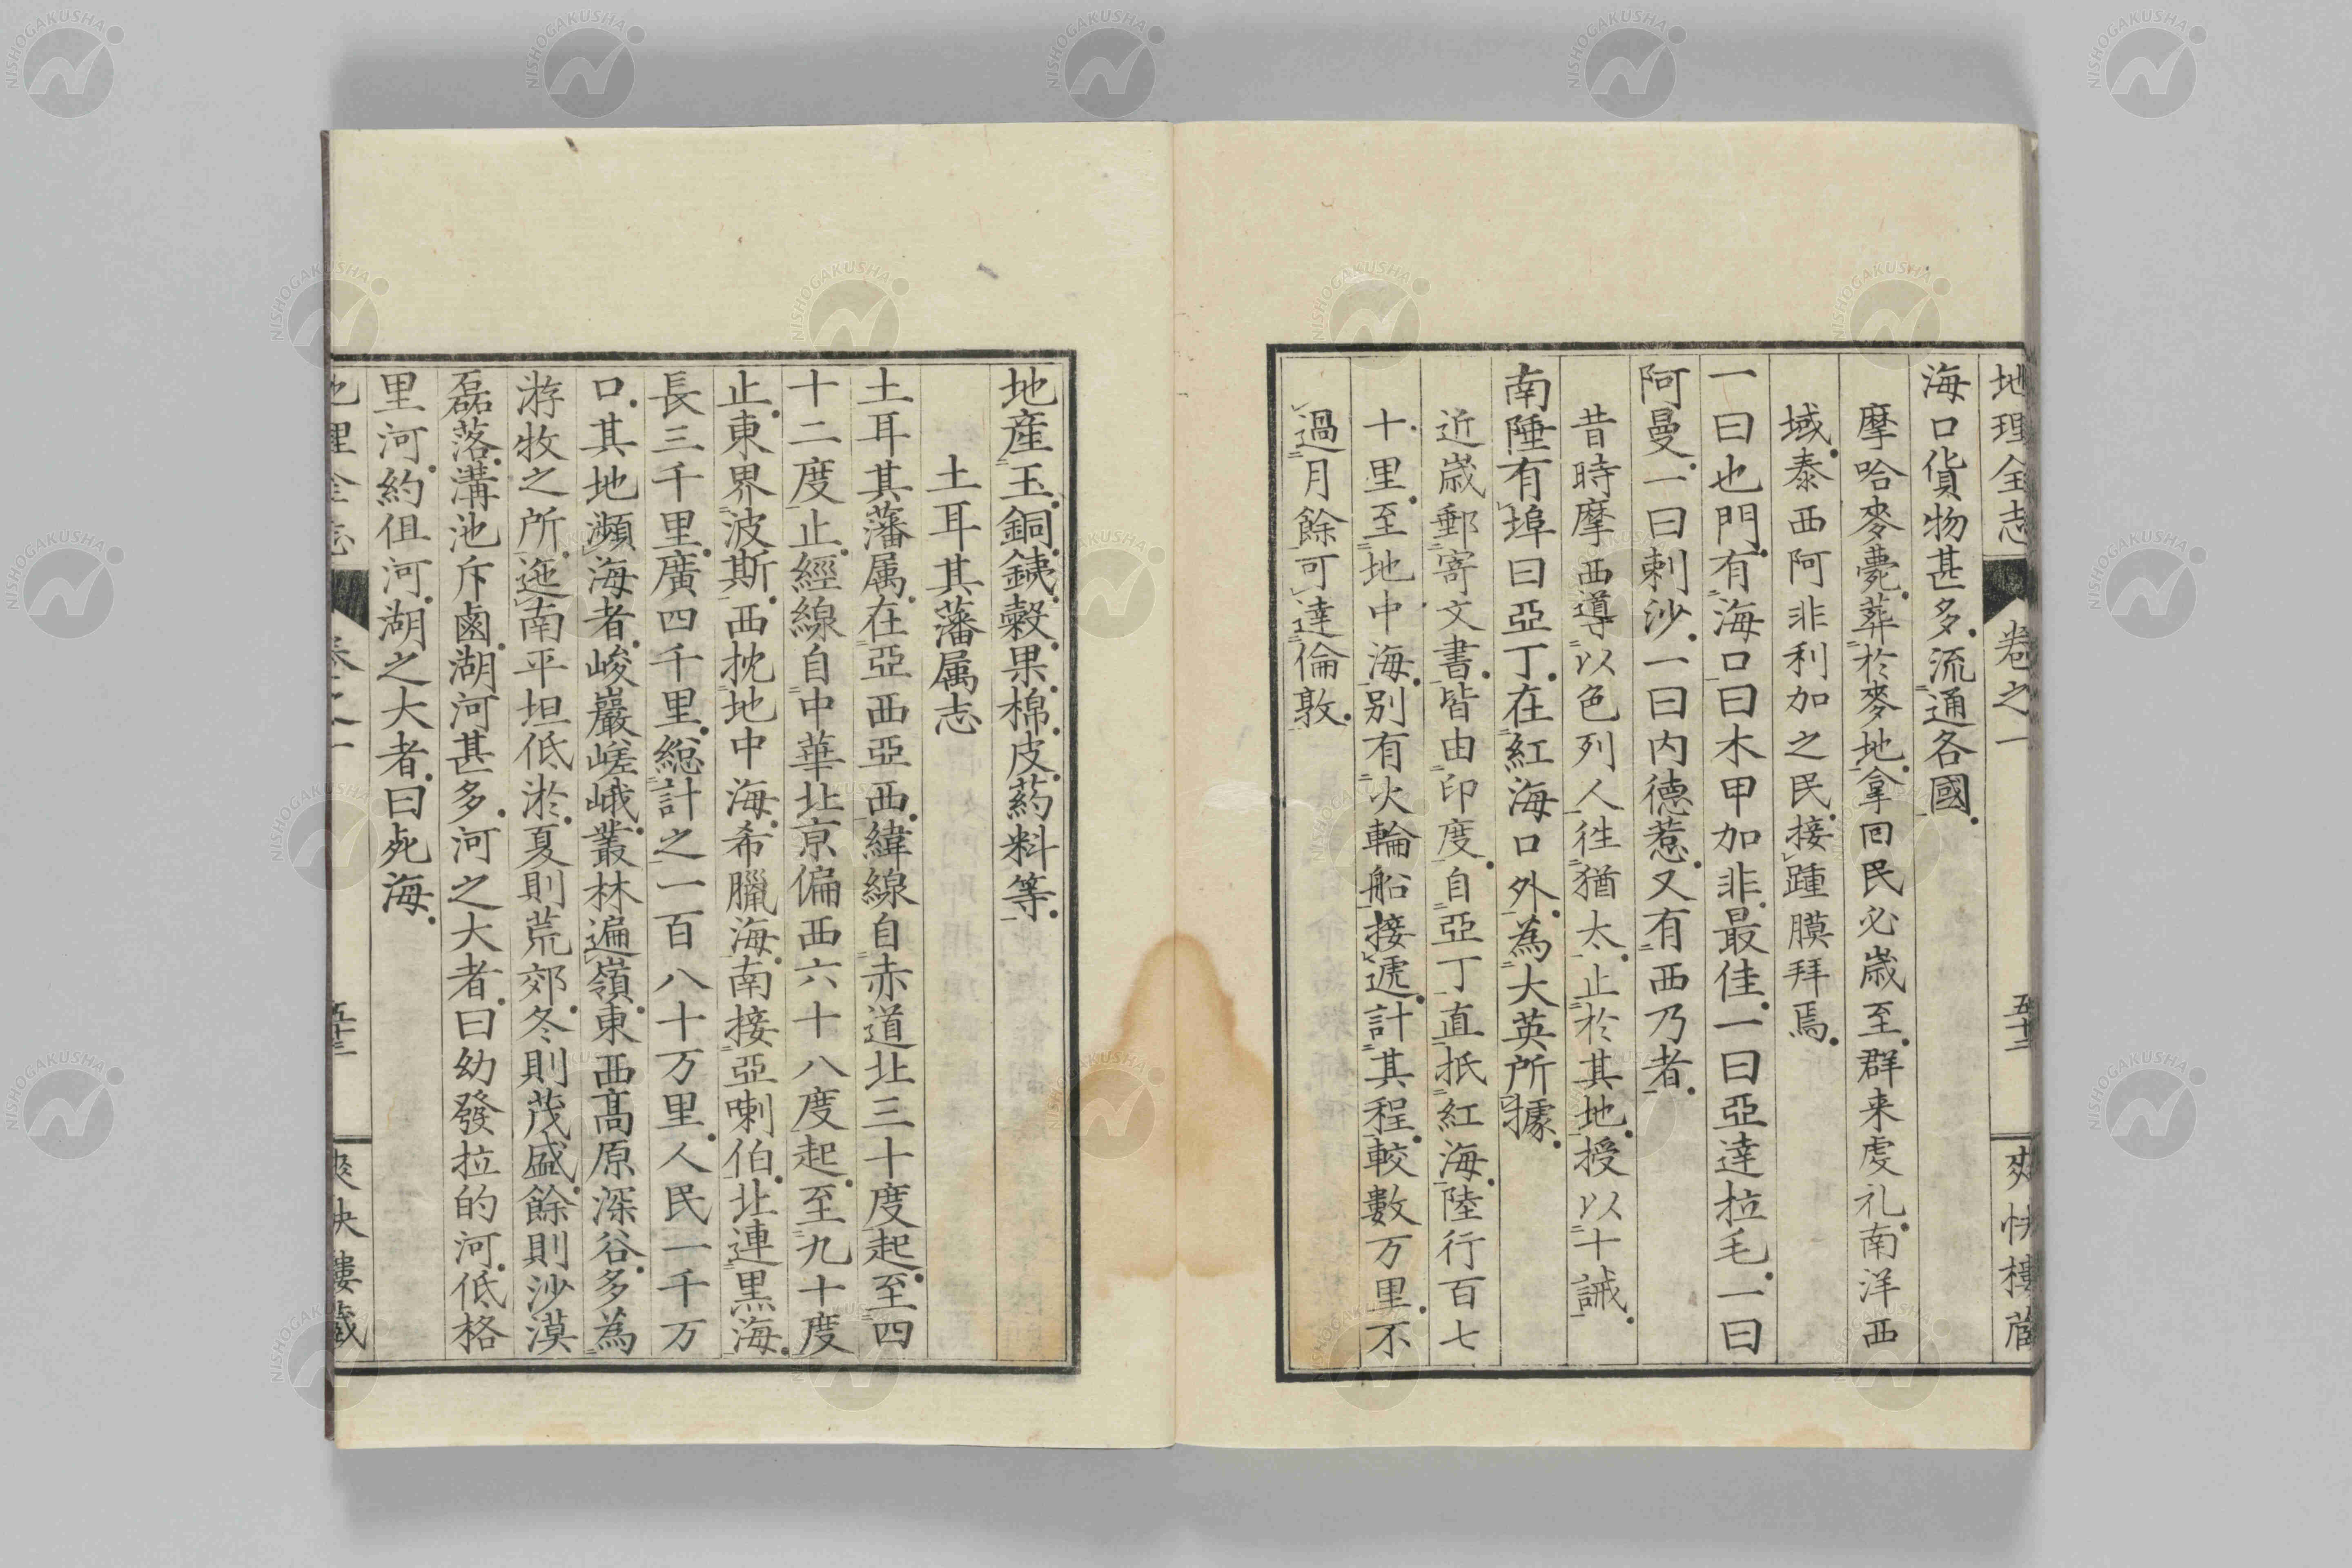 地理全志 卷之一 五十二 爽快樓藏
海口貨物甚多流通各國
摩哈麥薨葬於麥地拿回民必歲至群来虔礼南洋西
域泰西阿非利加之民接踵膜拜焉
一曰也門有海口曰木甲加非最佳一曰亞達拉毛一曰
阿曼一曰剌沙一曰内德惹又有西乃者
昔時摩西導以色列人徃猶太止於其地授以十誡
南陲有埠曰亞丁在紅海口外為大英所據
近歲郵寄文書皆由印度自亞丁直抵紅海陸行百七
十里至地中海別有火輪船接遞計其程較數万里不
過月餘可達倫敦
地產玉銅鐵穀果棉皮葯料等
土耳其藩属志
土耳其藩属在亞西亞西緯線自赤道北三十度起至四
十二度止經線自中華北京偏西六十八度起至九十度
止東界波斯西枕地中海希臘海南接亞喇伯北連黑海
長三千里廣四千里總計之一百八十万里人民一千万
口其地瀕海者峻巖嵯峨叢林遍嶺東西高原深谷多為
游牧之所迤南平坦低淤夏則荒郊冬則茂盛餘則沙漠
磊落溝池斥鹵湖河甚多河之大者曰幼發拉的河低格
里河約但河湖之大者曰死海
地理全志 卷之一 五十三 爽快樓藏
NISHOGAKUSHA